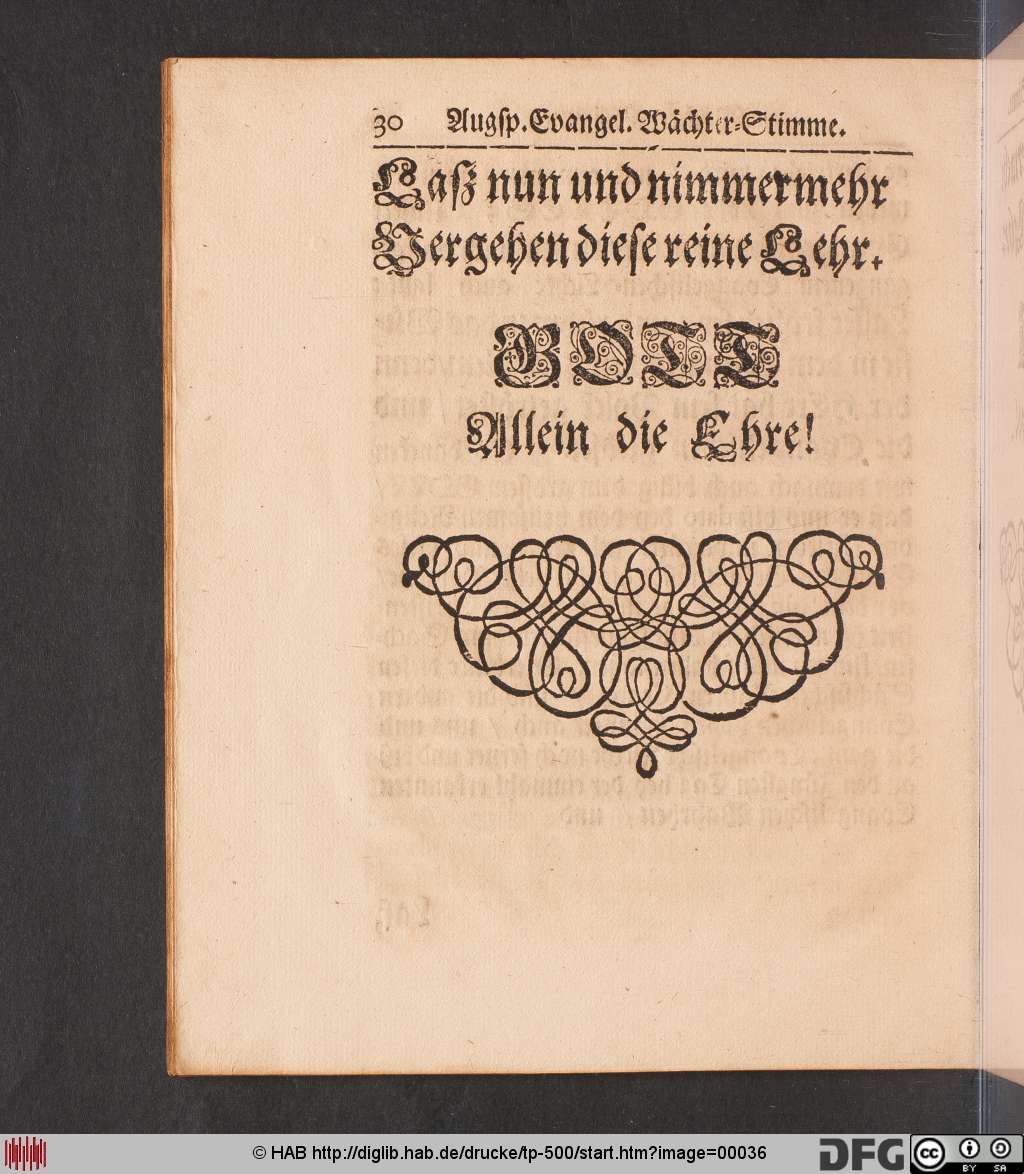 30 Augſp. Evangel. Wächter-Stimme.
Laß nun und nimmermehr
Vergehen dieſe reine Lehr.
GOTT
Allein die Ehre!
© HAB http://diglib.hab.de/drucke/tp-500/start.htm?image=00036
DFG
cc BY SA